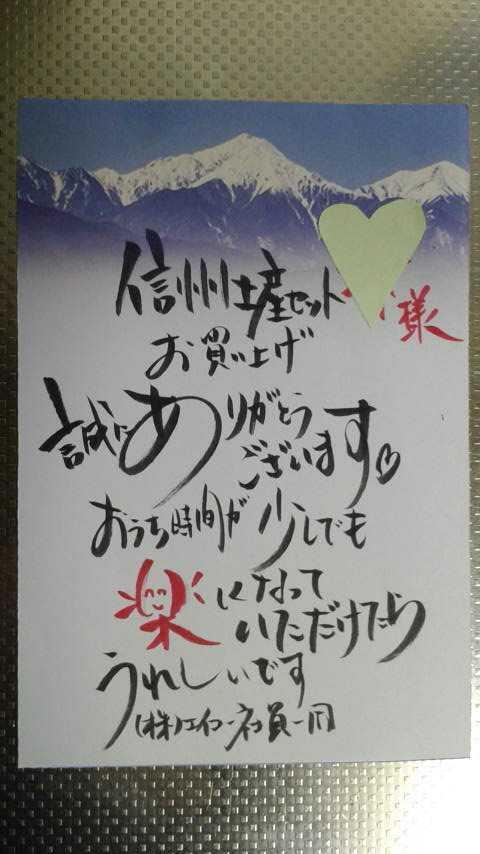 様
信州土産セット
お買い上げ
誠にありがとう
ございます
おうち時間が少しでも
楽になって
いただけたら
うれしいです
(株)エイコー社員一同